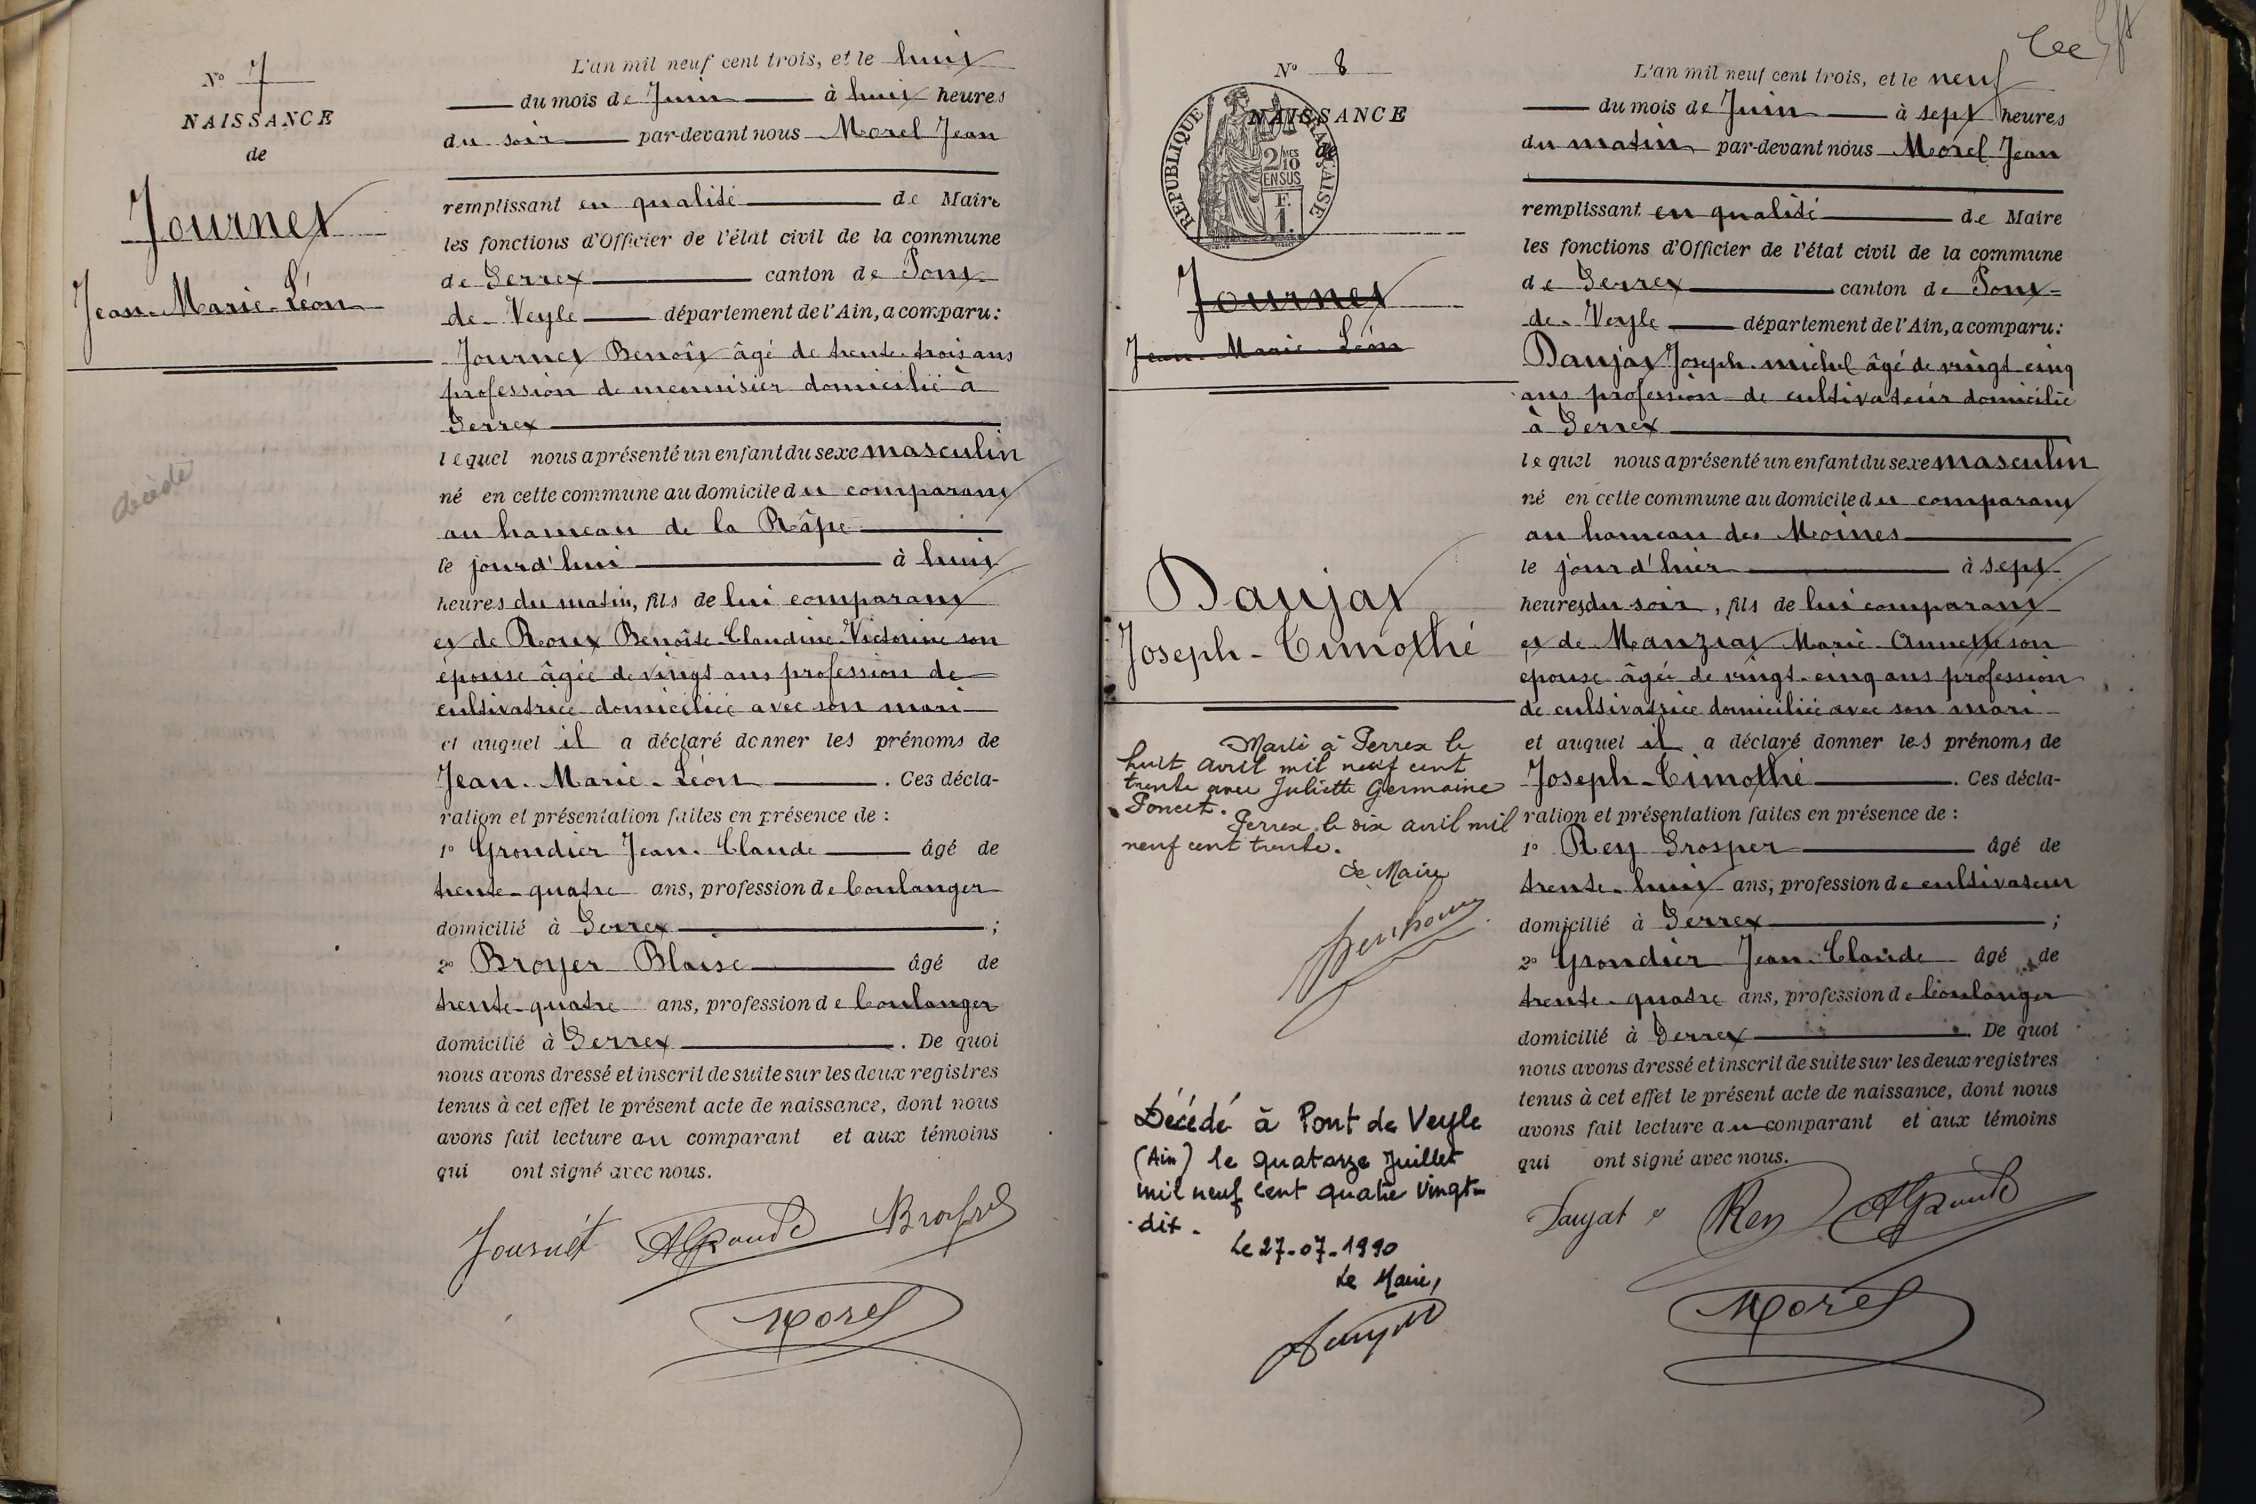 N° 7
NAISSANCE
de
Journet
Jean-Marie-Léon
décédé
L'an mil neuf cent trois, et le huit
du mois de Juin à huit heures
du soir par-devant nous Morel Jean
remplissant en qualité de Maire
les fonctions d'Officier de l'état civil de la commune
de Perrex canton de Pont-
de-Veyle département de l'Ain, a comparu:
Journet Benoît âgé de trente-trois ans
profession de menuisier domicilié à
Perrex
lequel nous a présenté un enfant du sexe masculin
né en cette commune au domicile du comparant
au hameau de la Râpe
le jourd'hui à huit
heures du matin, fils de lui comparant
et de Roux Benoîte-Claudine-Victorine son
épouse âgée de vingt ans profession de
cultivatrice domiciliée avec son mari
et auquel il a déclaré donner les prénoms de
Jean-Marie-Léon. Ces décla-
ration et présentation faites en présence de :
1° Grondier Jean-Claude âgé de
trente-quatre ans, profession de boulanger
domicilié à Perrex ;
2° Broyer Blaise âgé de
trente-quatre ans, profession de boulanger
domicilié à Perrex. De quoi
nous avons dressé et inscrit de suite sur les deux registres
tenus à cet effet le présent acte de naissance, dont nous
avons fait lecture au comparant et aux témoins
qui ont signé avec nous.
Journét
Morel
N° 8
NAISSANCE
de
RÉPUBLIQUE FRANÇAISE
2/10 MES
EN SUS
F.
1.
Journet
Jean-Marie-Léon
Daujat
Joseph-Timothé
Marié à Perrex le
huit avril mil neuf cent
trente avec Juliette Germaine
Poncet.
Perrex le dix avril mil
neuf cent trente.
Le Maire
Décédé à Pont de Veyle
(Ain) le quatorze Juillet
mil neuf cent quatre vingt-
dix.
Le 27-07-1990
Le Maire,
L'an mil neuf cent trois, et le neuf
du mois de Juin à sept heures
du matin par-devant nous Morel Jean
remplissant en qualité de Maire
les fonctions d'Officier de l'état civil de la commune
de Perrex canton de Pont-
de-Veyle département de l'Ain, a comparu:
Daujat Joseph-michel âgé de vingt cinq
ans profession de cultivateur domicilié
à Perrex
lequel nous a présenté un enfant du sexe masculin
né en cette commune au domicile du comparant
au hameau des Moines
le jour d'hier à sept
heures du soir, fils de lui comparant
et de Manziat Marie-Annette son
épouse âgée de vingt-cinq ans profession
de cultivatrice domiciliée avec son mari
et auquel il a déclaré donner les prénoms de
Joseph-Timothé. Ces décla-
ration et présentation faites en présence de :
1° Rey Prosper âgé de
trente-huit ans, profession de cultivateur
domicilié à Perrex ;
2° Grondier Jean-Claude âgé de
trente-quatre ans, profession de boulanger
domicilié à Perrex. De quoi
nous avons dressé et inscrit de suite sur les deux registres
tenus à cet effet le présent acte de naissance, dont nous
avons fait lecture au comparant et aux témoins
qui ont signé avec nous.
Daujat Rey
Morel